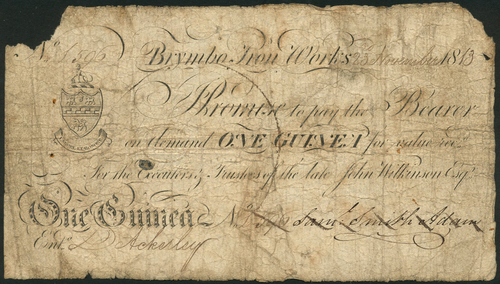 No. Brymbo Iron Works 23 November 1813
I Promise to pay the Bearer
on demand ONE GUINEA for value recd.
For the Executors & Trustees of the late John Wilkinson Esqr.
One Guinea No. Saml. Smith Adam
Entd. D Ackerley